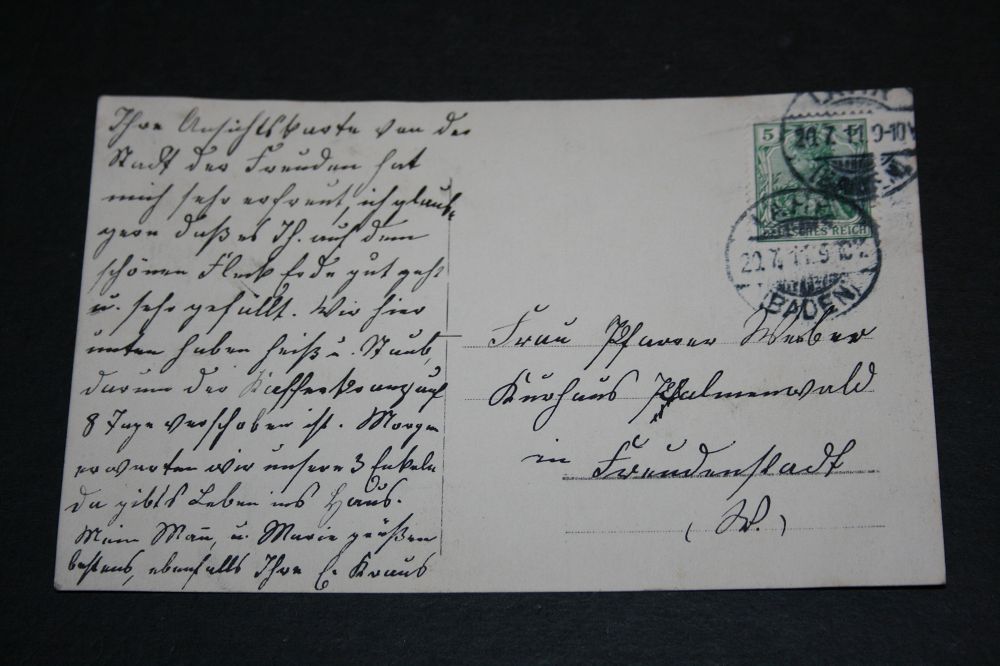 Ihre Ansichtskarte von der
Stadt der Freuden hat
mich sehr erfreut, ich glaube
gern daß es Ih. auf dem
schönen Fleck Erde gut geht
u. sehr gefällt. Wir hier
unten haben heiß u. Staub,
darum der Kaffeekranz auf
8 Tage verschoben ist. Morgen
erwarten wir unsere 3 Enkele
da gibt's Leben ins Haus.
Mein Mañ, u. Marie grüßen
bestens, ebenfalls Ihre E. Kraus
5 5
DEUTSCHES REICH
LAHR
20.7.11.9-10V
(BADEN)
LAHR
20.7.11.9-10V
(BADEN)
Frau Pfarrer Weber
Kurhaus Palmenwald
in Freudenstadt
(W.)